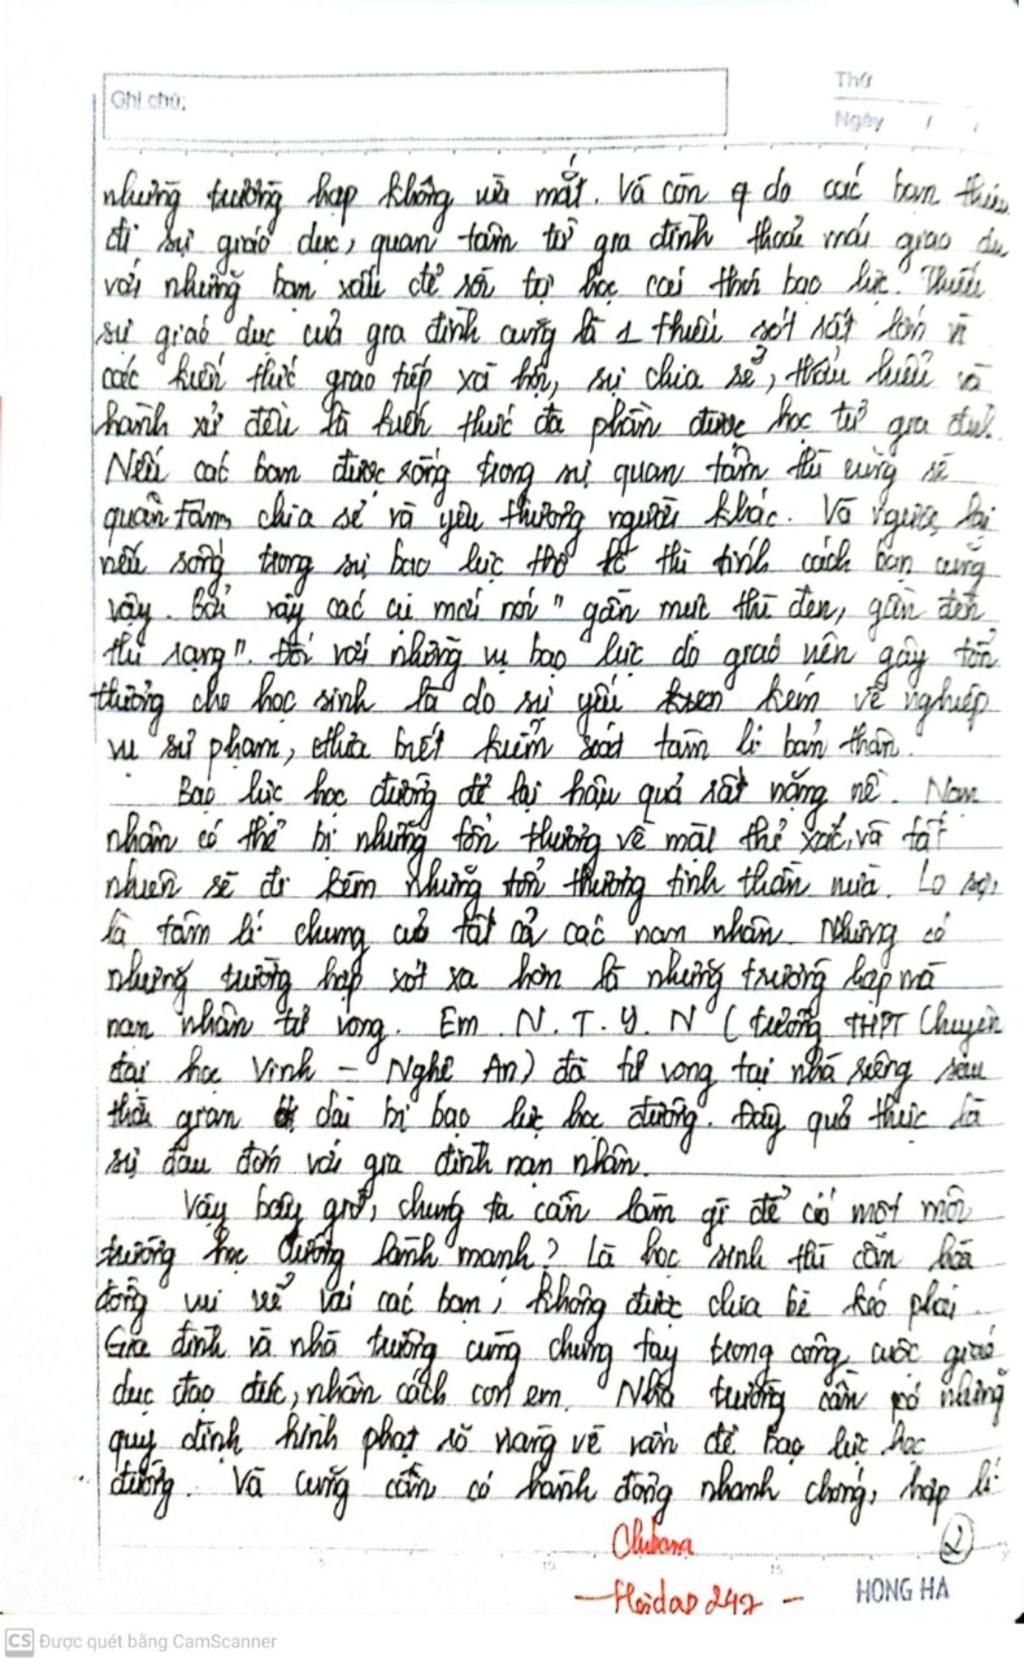 Ghi chú:
Thứ
Ngày / /
những trường hợp không vừa mắt. Và còn do các bạn thiếu
đi sự giáo dục, quan tâm từ gia đình thoải mái giao du
với những bạn xấu để rồi tự học cái thói bạo lực. Thiếu
sự giáo dục của gia đình cũng là 1 thiếu sót rất lớn vì
các kiến thức giao tiếp xã hội, sự chia sẻ, thấu hiểu và
hành xử đều là kiến thức đa phần được học từ gia đình.
Nếu các bạn được sống trong sự quan tâm thì cũng sẽ
quan tâm, chia sẻ và yêu thương người khác. Và ngược lại
nếu sống trong sự bạo lực thô lỗ thì tính cách bạn cũng
vậy. Bởi vậy các cụ mới nói "gần mực thì đen, gần đèn
thì rạng". Đối với những vụ bạo lực do giáo viên gây tổn
thương cho học sinh là do sự yếu kém về nghiệp
vụ sư phạm, chưa biết kiểm soát tâm lí bản thân.
Bạo lực học đường để lại hậu quả rất nặng nề. Nạn
nhân có thể bị những tổn thương về mặt thể xác, và tất
nhiên sẽ đi kèm những tổn thương tinh thần nữa. Lo sợ
là tâm lí chung của tất cả các nạn nhân. Nhưng có
những trường hợp xót xa hơn là những trường hợp mà
nạn nhân tử vong. Em N.T.Y.N (trường THPT Chuyên
đại học Vinh - Nghệ An) đã tử vong tại nhà riêng sau
thời gian dài bị bạo lực học đường. Đây quả thực là
sự đau đớn với gia đình nạn nhân.
Vậy bây giờ, chúng ta cần làm gì để có một môi
trường học đường lành mạnh? Là học sinh thì cần hòa
đồng vui vẻ với các bạn, không được chia bè kéo phái.
Gia đình và nhà trường cùng chung tay trong công cuộc giáo
dục đạo đức, nhân cách con em. Nhà trường cần có những
quy định hình phạt rõ ràng về vấn đề bạo lực học
đường. Và cũng cần có hành động nhanh chóng, hợp lí
2
- Hoidap247 -
HONG HA
CS Được quét bằng CamScanner